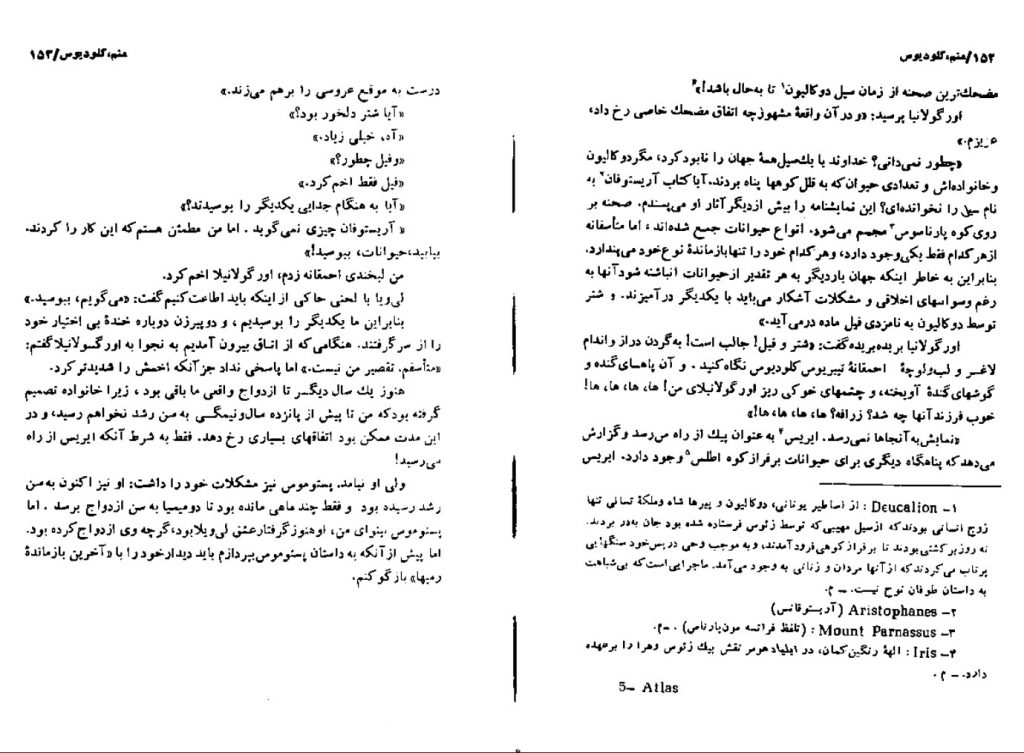 ۱۵۲/منم،کلودیوس
مضحك‌ترین صحنه از زمان سیل دوکالیون۱ تا به‌حال باشد!»۲
اورگولانیا پرسید: «و در آن واقعهٔ مشهور چه اتفاق مضحك خاصی رخ داد،
عزیزم.»
«چطور نمی‌دانی؟ خداوند با یك سیل همهٔ جهان را نابود کرد، مگر دوکالیون
و خانواده‌اش و تعدادی حیوان که به قلل کوهها پناه بردند. آیا کتاب آریستوفان۲ به
نام سیل را نخوانده‌ای؟ این نمایشنامه را بیش از دیگر آثار او می‌پسندم. صحنه بر
روی کوه پارناسوس۳ مجسم می‌شود. انواع حیوانات جمع شده‌اند، اما متأسفانه
از هر کدام فقط یکی وجود دارد، و هر کدام خود را تنها بازماندهٔ نوع خود می‌پندارد.
بنابراین به خاطر اینکه جهان بار دیگر به هر تقدیر از حیوانات انباشته شود آنها به
رغم وسواسهای اخلاقی و مشکلات آشکار می‌باید با یکدیگر درآمیزند. و شتر
توسط دوکالیون به نامزدی فیل ماده درمی‌آید.»
اورگولانیا بریده‌بریده گفت: «شتر و فیل! جالب است! به گردن دراز و اندام
لاغر و لب‌ولوچهٔ احمقانهٔ تیبریوس کلودیوس نگاه کنید. و آن پاهای گنده و
گوشهای گندهٔ آویخته، و چشمهای خوکی ریز اورگولانیلای من! ها، ها، ها، ها!
خوب فرزند آنها چه شد؟ زرافه؟ ها، ها، ها، ها!»
«نمایش به آنجاها نمی‌رسد. ایریس۴ به عنوان پیك از راه می‌رسد و گزارش
می‌دهد که پناهگاه دیگری برای حیوانات بر فراز کوه اطلس۵ وجود دارد. ایریس
۱– Deucalion : از اساطیر یونانی، دوکالیون و پیرها شاه و ملکهٔ تسالی تنها
زوج انسانی بودند که از سیل مهیبی که توسط زئوس فرستاده شده بود جان به‌در بردند.
نه روز بر کشتی بودند تا بر فراز کوهی فرود آمدند، و به موجب وحی در پس خود سنگهایی
پرتاب می‌کردند که از آنها مردان و زنانی به وجود می‌آمد. ماجرایی است که بی‌شباهت
به داستان طوفان نوح نیست. ــ م.
۲– Aristophanes (آریستوفانس)
۳– Mount Parnassus : (تلفظ فرانسه مون‌پارناس) . ــ م.
۴– Iris : الههٔ رنگین‌کمان، در ایلیاد هومر نقش پیك زئوس و هرا را برعهده
دارد. ــ م .
5– Atlas
منم،کلودیوس/۱۵۳
درست به موقع عروسی را برهم می‌زند.»
«آیا شتر دلخور بود؟»
«آه، خیلی زیاد.»
«و فیل چطور؟»
«فیل فقط اخم کرد.»
«آیا به هنگام جدایی یکدیگر را بوسیدند؟»
«آریستوفان چیزی نمی‌گوید . اما من مطمئن هستم که این کار را کردند.
بیایید، حیوانات، ببوسید!»
من لبخندی احمقانه زدم، اورگولانیلا اخم کرد.
لی‌ویا با لحنی حاکی از اینکه باید اطاعت کنیم گفت: «می‌گویم، ببوسید.»
بنابراین ما یکدیگر را بوسیدیم ، و دو پیرزن دوباره خندهٔ بی اختیار خود
را از سر گرفتند. هنگامی که از اتاق بیرون آمدیم به نجوا به اورگولانیلا گفتم:
«متأسفم. تقصیر من نیست.» اما پاسخی نداد جز آنکه اخمش را شدیدتر کرد.
هنوز یك سال دیگر تا ازدواج واقعی ما باقی بود ، زیرا خانواده تصمیم
گرفته بود که من تا پیش از پانزده سال‌ونیمگی به سن رشد نخواهم رسید، و در
این مدت ممکن بود اتفاقهای بسیاری رخ دهد. فقط به شرط آنکه ایریس از راه
می‌رسید!
ولی او نیامد. پستوموس نیز مشکلات خود را داشت: او نیز اکنون به سن
رشد رسیده بود و فقط چند ماهی مانده بود تا دومیسیا به سن ازدواج برسد . اما
پستوموس بینوای من، او هنوز گرفتار عشق لی‌ویلا بود، گرچه وی ازدواج کرده بود.
اما پیش از آنکه به داستان پستوموس بپردازم باید دیدار خود را با «آخرین بازماندهٔ
رمیها» بازگو کنم.